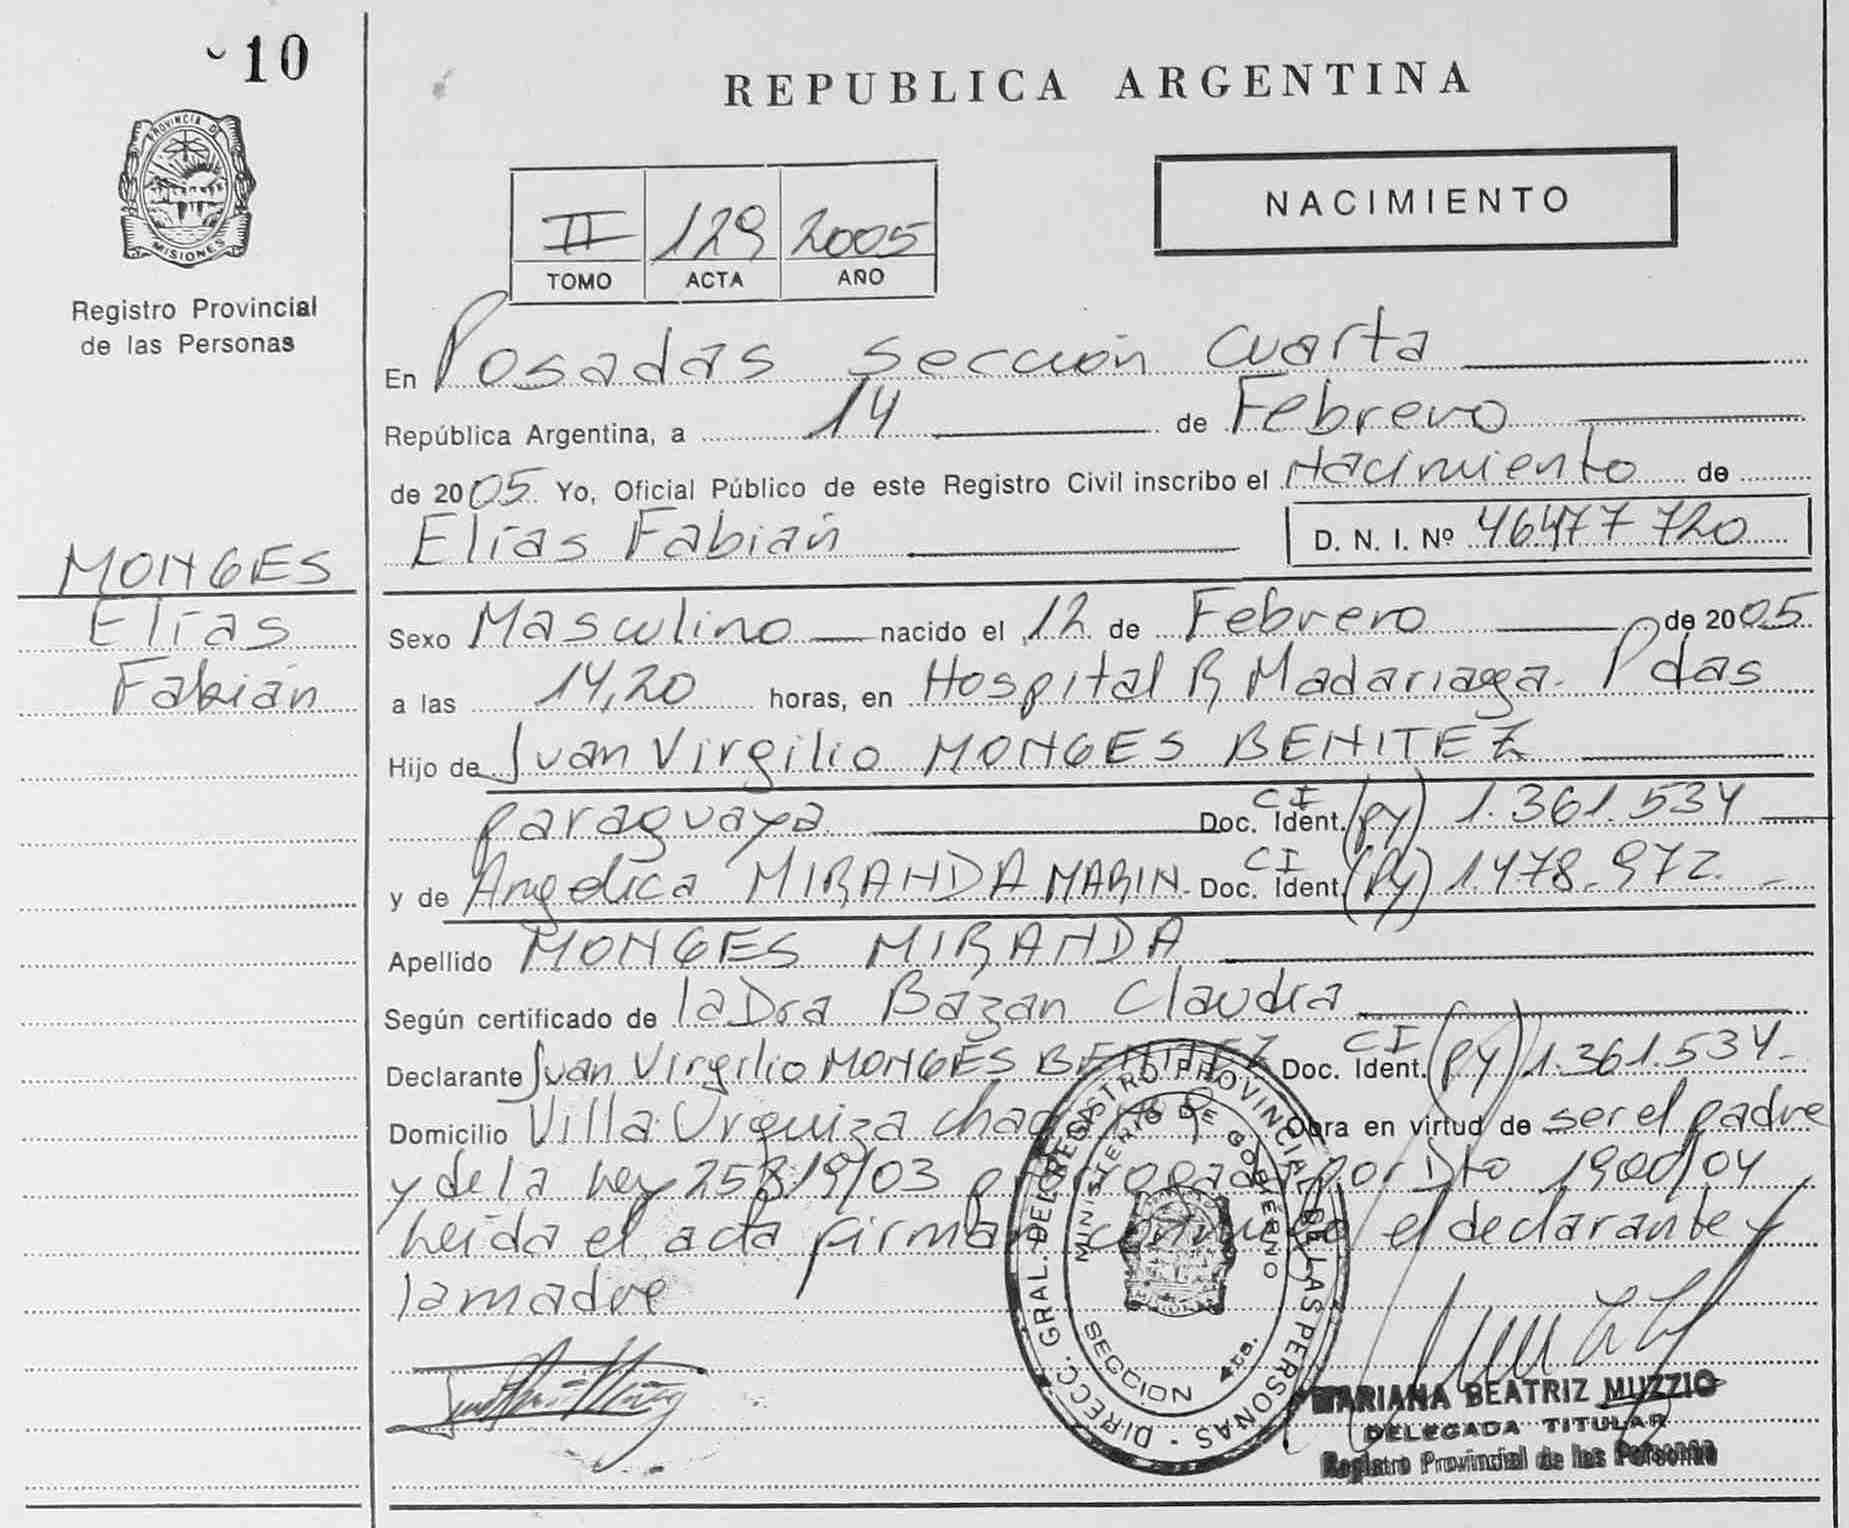 10
REPUBLICA ARGENTINA
PROVINCIA DE
MISIONES
Registro Provincial
de las Personas
II 129 2005
TOMO ACTA AÑO
NACIMIENTO
En Posadas sección cuarta
República Argentina, a 14 de Febrero
de 2005 Yo, Oficial Público de este Registro Civil inscribo el Nacimiento de
Elías Fabián D. N. I. Nº 46477720
MONGES
Elías
Fabián
Sexo Masculino nacido el 12 de Febrero de 2005
a las 14,20 horas, en Hospital R Madariaga. Pdas
Hijo de Juan Virgilio MONGES BENITEZ
paraguaya Doc. Ident. CI (py) 1.361.534
y de Angelica MIRANDA MARIN Doc. Ident. CI (Py) 1.478.972.
Apellido MONGES MIRANDA
Según certificado de la Dra Bazan Claudia
Declarante Juan Virgilio MONGES BENITEZ Doc. Ident. CI (py) 1.361.534
Domicilio Villa Urquiza chac Obra en virtud de ser el padre
y de la Ley 25819/03 prorrogada por Dto 1900/04
Leída el acta firman conmigo el declarante y
la madre
DIRECC. GRAL. DEL REGISTRO PROVINCIAL DE LAS PERSONAS
MINISTERIO DE GOBIERNO
SECCION 4ta.
MARIANA BEATRIZ MUZZIO
DELEGADA TITULAR
Registro Provincial de las Personas